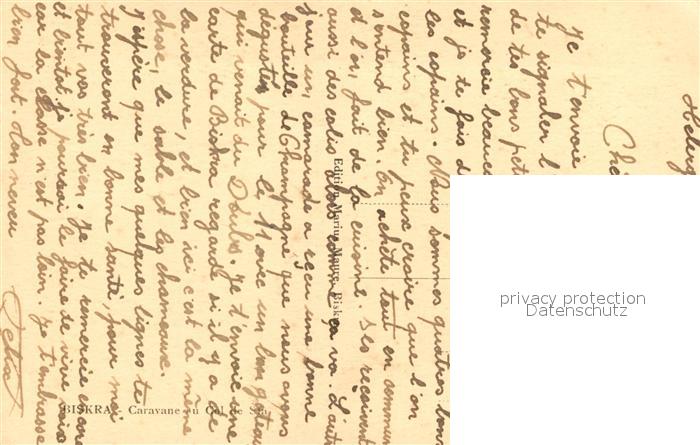 Ché
Je t'envoie
te signaler l
de tes bons pet
remercie beauc
et je te fais d
les copains. Nous sommes quatres bons
copains et tu peux croire que l'on
s'entend bien. On achète tout en commun
et l'on fait de la cuisine. Des reçoivent
aussi des colis alors comme ça va. L'autre
jour un camarade a reçu une bonne
bouteille de Champagne que nous avons
dégustée pour le 11 avec un bon gateau
qui venait du Doubs. Je t'envoie une
carte de Biskra regarde si il y a de
la verdure, et bien ici c'est la même
chose, le sable et les chameaux.
J'espère que mes quelques lignes te
trouveront en bonne santé, pour moi
tout vas très bien. Je te remercie encore
et bientôt je pourrai le faire de vive voix
car la classe n'est pas loin. Je t'embrasse
bien fort. Ton neveu
Edition Marius Maure, Biskra
BISKRA - Caravane au Col de Sfa
privacy protection
Datenschutz